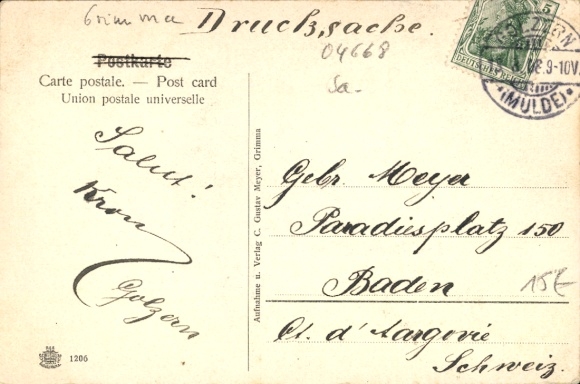 Grimma
Drucksache.
04668
Sa.
Postkarte
Carte postale. — Post card
Union postale universelle
5
DEUTSCHES REICH
GOLZERN
8.9-10V.
*(MULDE)*
Salut!
Kron
Golzern
Aufnahme u. Verlag C. Gustav Meyer, Grimma
Gebr. Meyer
Paradiesplatz 150
Baden
15E
Ct. d'Aargovie
Schweiz.
1206